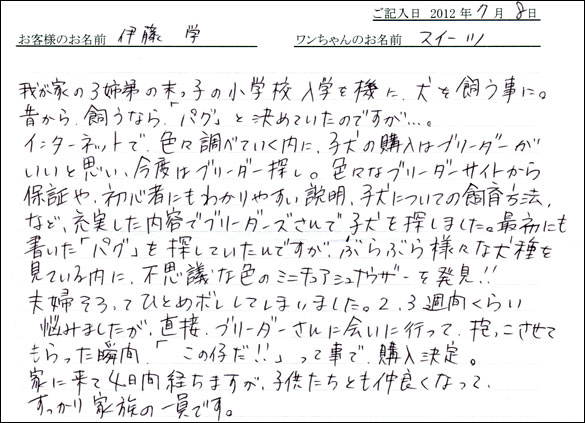 ご記入日 2012年7月8日
お客様のお名前 伊藤 学 ワンちゃんのお名前 スイーツ
我が家の3姉弟の末っ子の小学校入学を機に、犬を飼う事に。
昔から、飼うなら、「パグ」と決めていたのですが…。
インターネットで、色々調べていく内に、子犬の購入はブリーダーが
いいと思い、今度はブリーダー探し。色々なブリーダーサイトから
保証や、初心者にもわかりやすい説明、子犬についての飼育方法、
など、充実した内容でブリーダーズさんで子犬を探しました。最初にも
書いた「パグ」を探していたんですが、ぶらぶら様々な犬種を
見ている内に、不思議な色のミニチュアシュナウザーを発見!!
夫婦そろってひとめボレしてしまいました。2、3週間くらい
悩みましたが、直接、ブリーダーさんに会いに行って、抱っこさせて
もらった瞬間、「この仔だ!!」って事で、購入決定。
家に来て4日間経ちますが、子供たちとも仲良くなって、
すっかり家族の一員です。